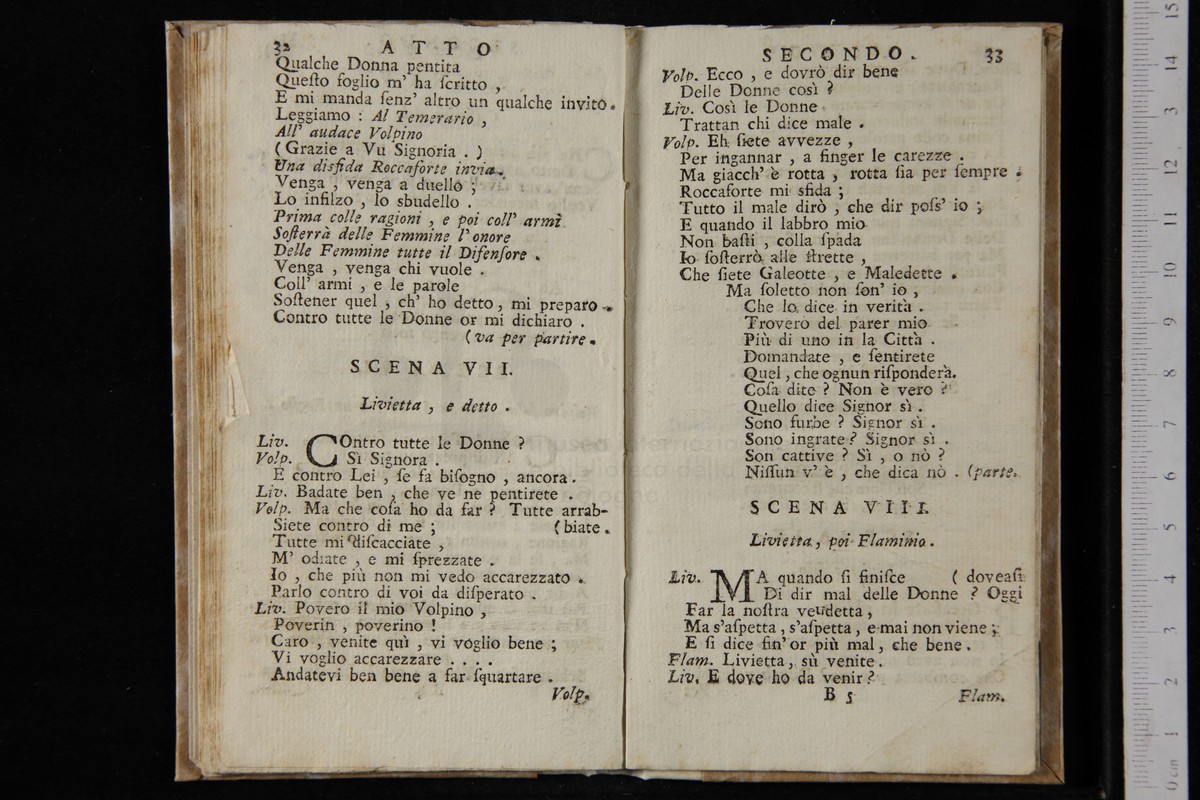 32 ATTO
Qualche Donna pentita
Queſto foglio m' ha ſcritto ,
E mi manda ſenz' altro un qualche invito.
Leggiamo : Al Temerario ,
All' audace Volpino
( Grazie a Vu Signoria . )
Una disfida Roccaforte invia.
Venga , venga a duello ;
Lo infilzo , lo sbudello .
Prima colle ragioni , e poi coll' armi
Soſterrà delle Femmine l' onore
Delle Femmine tutte il Difenſore .
Venga , venga chi vuole .
Coll' armi , e le parole
Soſtener quel , ch' ho detto, mi preparo.
Contro tutte le Donne or mi dichiaro .
( va per partire.
SCENA VII.
Livietta , e detto .
Liv. COntro tutte le Donne ?
Volp. Sì Signora .
E contro Lei , ſe fa biſogno , ancora.
Liv. Badate ben , che ve ne pentirete .
Volp. Ma che coſa ho da far ? Tutte arrab-
Siete contro di me ; ( biate.
Tutte mi diſcacciate ,
M' odiate , e mi ſprezzate .
Io , che più non mi vedo accarezzato .
Parlo contro di voi da diſperato .
Liv. Povero il mio Volpino ,
Poverin , poverino !
Caro , venite quì , vi voglio bene ;
Vi voglio accarezzare . . . .
Andatevi ben bene a far ſquartare .
Volp.
SECONDO. 33
Volp. Ecco , e dovrò dir bene
Delle Donne così ?
Liv. Così le Donne
Trattan chi dice male .
Volp. Eh ſiete avvezze ,
Per ingannar , a finger le carezze .
Ma giacch' è rotta , rotta ſia per ſempre .
Roccaforte mi sfida ;
Tutto il male dirò , che dir poſs' io ;
E quando il labbro mio
Non baſti , colla ſpada
Io ſoſterrò alle ſtrette ,
Che ſiete Galeotte , e Maledette .
Ma ſoletto non ſon' io ,
Che lo dice in verità .
Troverò del parer mio
Più di uno in la Città .
Domandate , e ſentirete
Quel , che ognun riſponderà.
Coſa dite ? Non è vero ?
Quello dice Signor sì .
Sono furbe ? Signor sì .
Sono ingrate ? Signor sì .
Son cattive ? Sì , o nò ?
Niſſun v' è , che dica nò . (parte.
SCENA VIII.
Livietta, poi Flaminio.
Liv. MA quando ſi finiſce ( doveaſi
Di dir mal delle Donne ? Oggi
Far la noſtra veudetta ,
Ma s'aſpetta , s'aſpetta , e mai non viene ;
E ſi dice ſin' or più mal, che bene.
Flam. Livietta, sù venite.
Liv. E dove ho da venir ?
B 5 Flam.